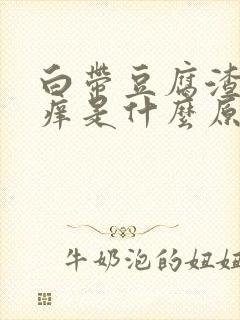 白带豆腐渣
痒是什麼原
牛奶泡的妞妞